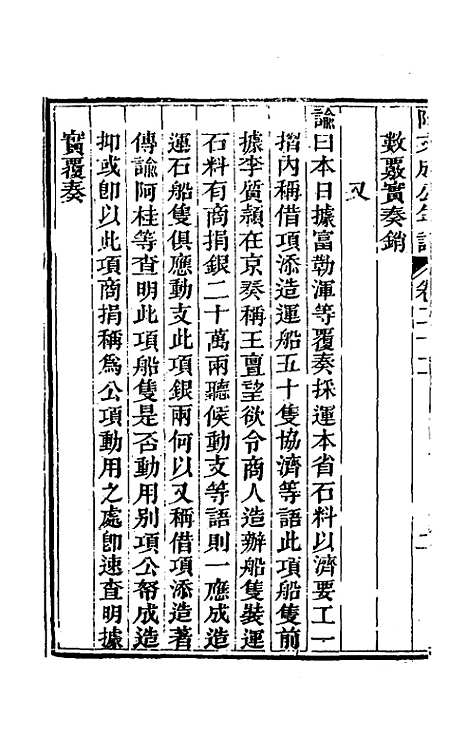 阿文成公年譜 卷二十二 二
數覈實奏銷
又
諭曰本日據富勒渾等覆奏採運本省石料以濟要工一
摺內稱借項添造運船五十隻協濟等語此項船隻前
據李質頴在京奏稱王亶望欲令商人造辦船隻裝運
石料有商捐銀二十萬兩聽候動支等語則一應成造
運石船隻俱應動支此項銀兩何以又稱借項添造著
傳諭阿桂等查明此項船隻是否動用別項公帑成造
抑或卽以此項商捐稱爲公項動用之處卽速查明據
實覆奏